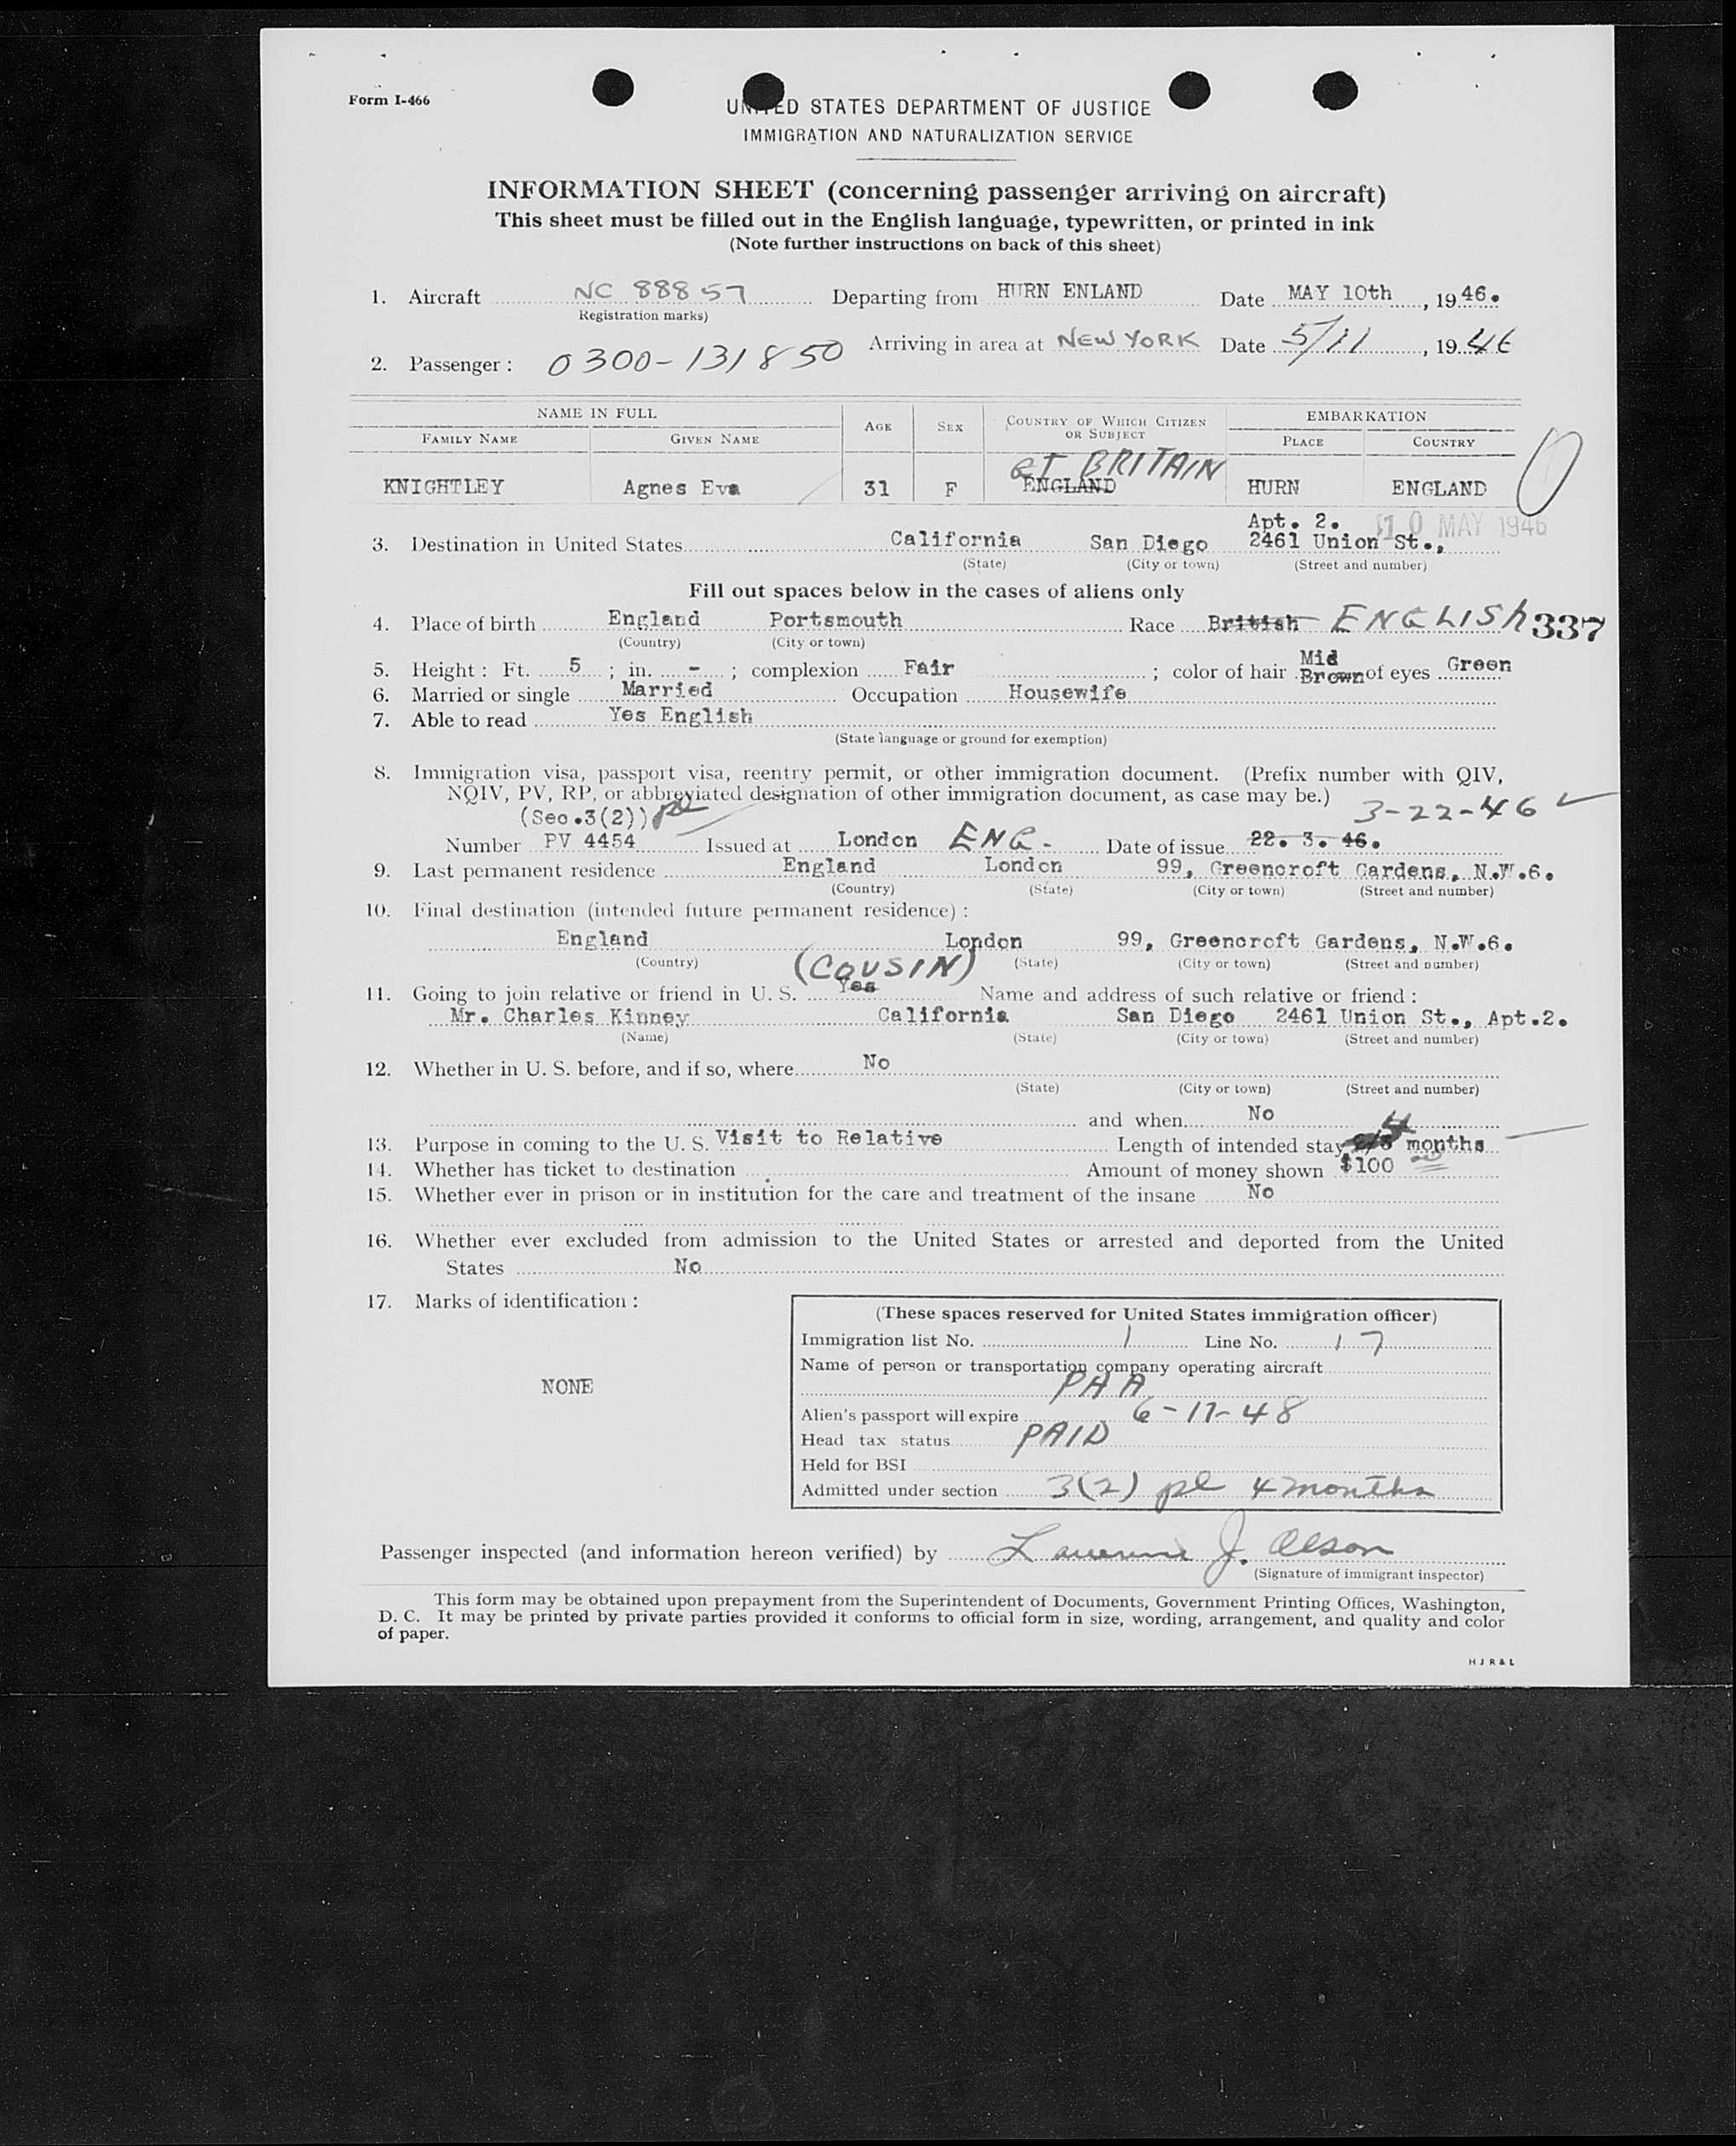 Form I-466
UNITED STATES DEPARTMENT OF JUSTICE
IMMIGRATION AND NATURALIZATION SERVICE
INFORMATION SHEET (concerning passenger arriving on aircraft)
This sheet must be filled out in the English language, typewritten, or printed in ink
(Note further instructions on back of this sheet)
1. Aircraft NC 88857 Departing from HURN ENLAND Date MAY 10th, 1946.
Registration marks)
Arriving in area at NEW YORK Date 5/11, 1946
2. Passenger: 0300-131850
NAME IN FULL AGE SEX COUNTRY OF WHICH CITIZEN OR SUBJECT EMBARKATION
FAMILY NAME GIVEN NAME PLACE COUNTRY
GT BRITAIN
KNIGHTLEY Agnes Eva 31 F ENGLAND HURN ENGLAND
Apt. 2. 10 MAY 1946
3. Destination in United States California San Diego 2461 Union St.,
(State) (City or town) (Street and number)
Fill out spaces below in the cases of aliens only
4. Place of birth England Portsmouth Race British ENGLISH 337
(Country) (City or town)
5. Height: Ft. 5; in. -; complexion Fair; color of hair Mid Brown of eyes Green
6. Married or single Married Occupation Housewife
7. Able to read Yes English
(State language or ground for exemption)
8. Immigration visa, passport visa, reentry permit, or other immigration document. (Prefix number with QIV,
NQIV, PV, RP, or abbreviated designation of other immigration document, as case may be.)
(Sec.3(2)) pl 3-22-46
Number PV 4454 Issued at London ENG. Date of issue 22. 3. 46.
9. Last permanent residence England London 99, Greencroft Gardens, N.W.6.
(Country) (State) (City or town) (Street and number)
10. Final destination (intended future permanent residence):
England London 99, Greencroft Gardens, N.W.6.
(Country) (State) (City or town) (Street and number)
(COUSIN)
11. Going to join relative or friend in U. S. Yes Name and address of such relative or friend:
Mr. Charles Kinney California San Diego 2461 Union St., Apt.2.
(Name) (State) (City or town) (Street and number)
12. Whether in U. S. before, and if so, where No
(State) (City or town) (Street and number)
and when No
13. Purpose in coming to the U. S. Visit to Relative Length of intended stay 4 months
14. Whether has ticket to destination Amount of money shown $100
15. Whether ever in prison or in institution for the care and treatment of the insane No
16. Whether ever excluded from admission to the United States or arrested and deported from the United
States No
17. Marks of identification:
NONE
(These spaces reserved for United States immigration officer)
Immigration list No. 1 Line No. 17
Name of person or transportation company operating aircraft
PAA
Alien's passport will expire 6-17-48
Head tax status PAID
Held for BSI
Admitted under section 3(2) pl 4 months
Passenger inspected (and information hereon verified) by Lawrence J. Olson
(Signature of immigrant inspector)
This form may be obtained upon prepayment from the Superintendent of Documents, Government Printing Offices, Washington,
D. C. It may be printed by private parties provided it conforms to official form in size, wording, arrangement, and quality and color
of paper.
H J R & L